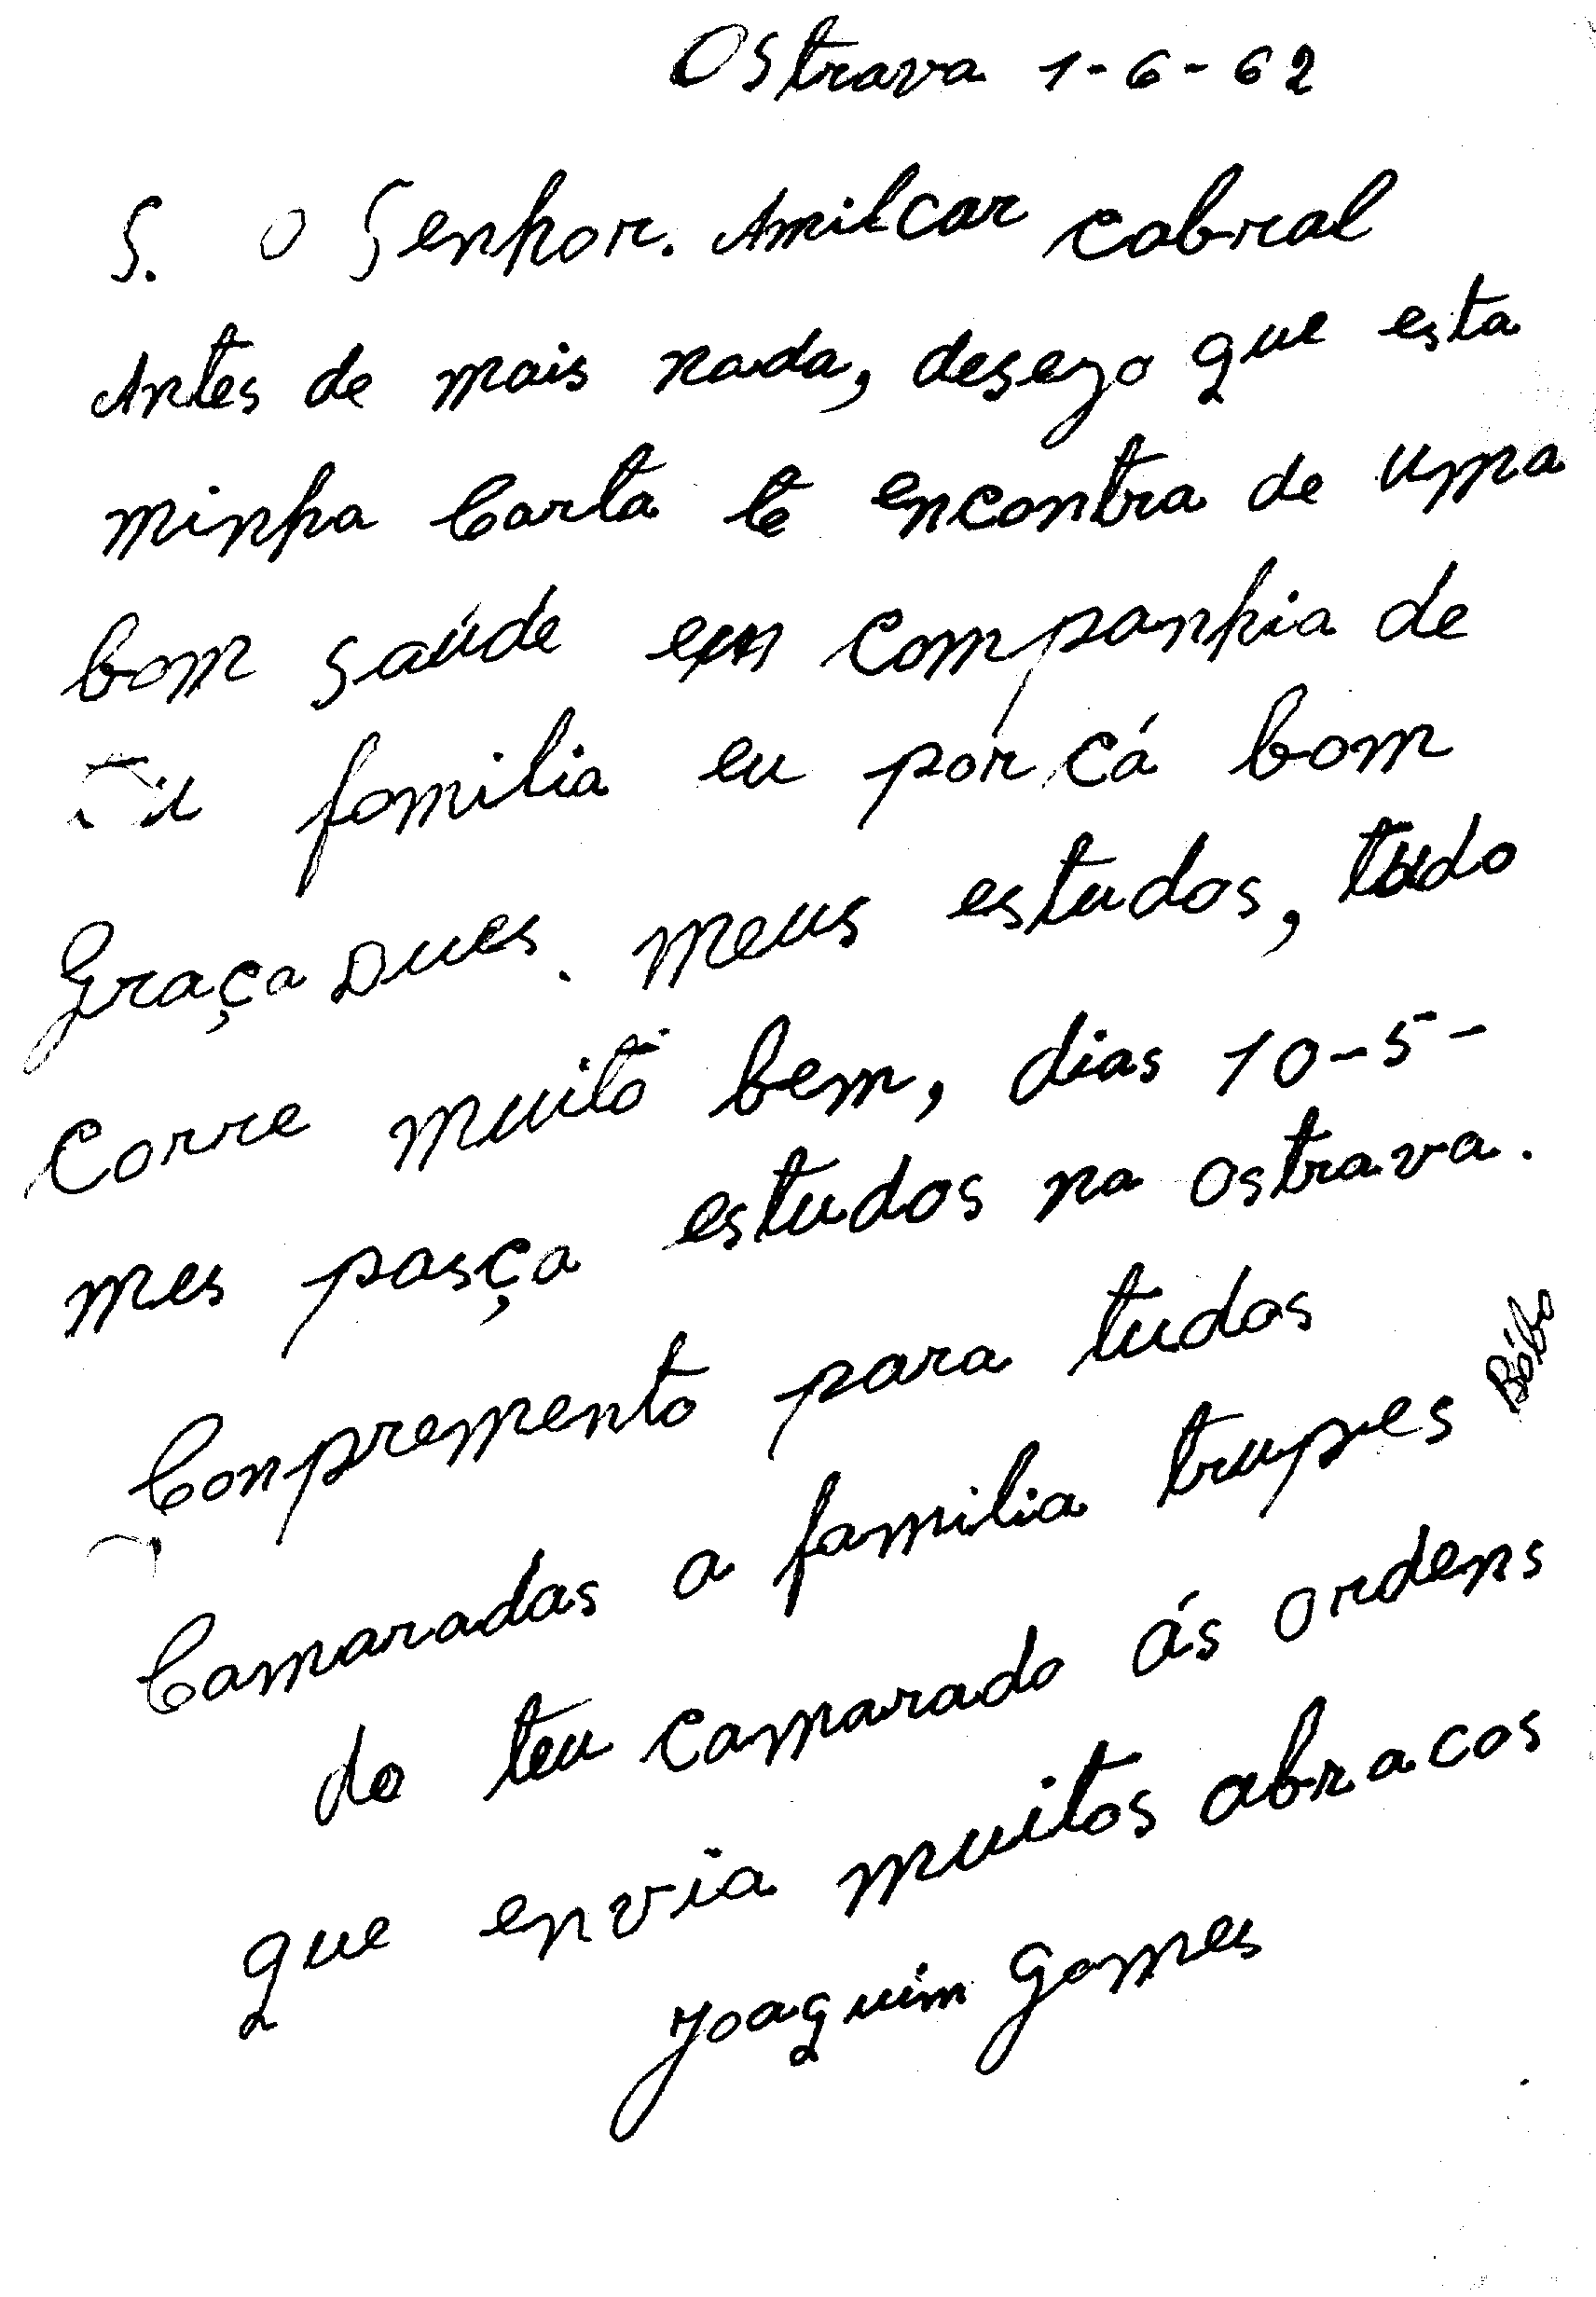 Ostrava 1-6-62
S. O Senhor. Amilcar Cabral
Antes de mais nada, desejo que esta
minha Carta te encontra de uma
bom saúde em Companhia de
familia eu por cá bom
Graça Dues. Meus estudos, tudo
Corre muito bem, dias 10-5-
mes pasça estudos na Ostrava.
Conpremento para tudos
Camaradas a familia trupes Bóbo
do teu Camarado ás Ordens
que envia muitos abracos
Joaquim Gomes